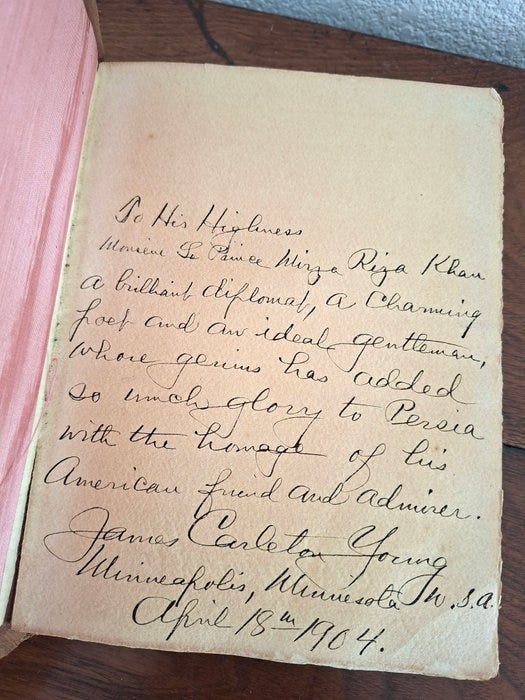 To His Highness
Monsieur Le Prince Mirza Riza Khan
a brilliant diplomat, a charming
poet and an ideal gentleman,
whose genius has added
so much glory to Persia
with the homage of his
American friend and admirer.
James Carleton Young
Minneapolis, Minnesota U.S.A.
April 18th 1904.